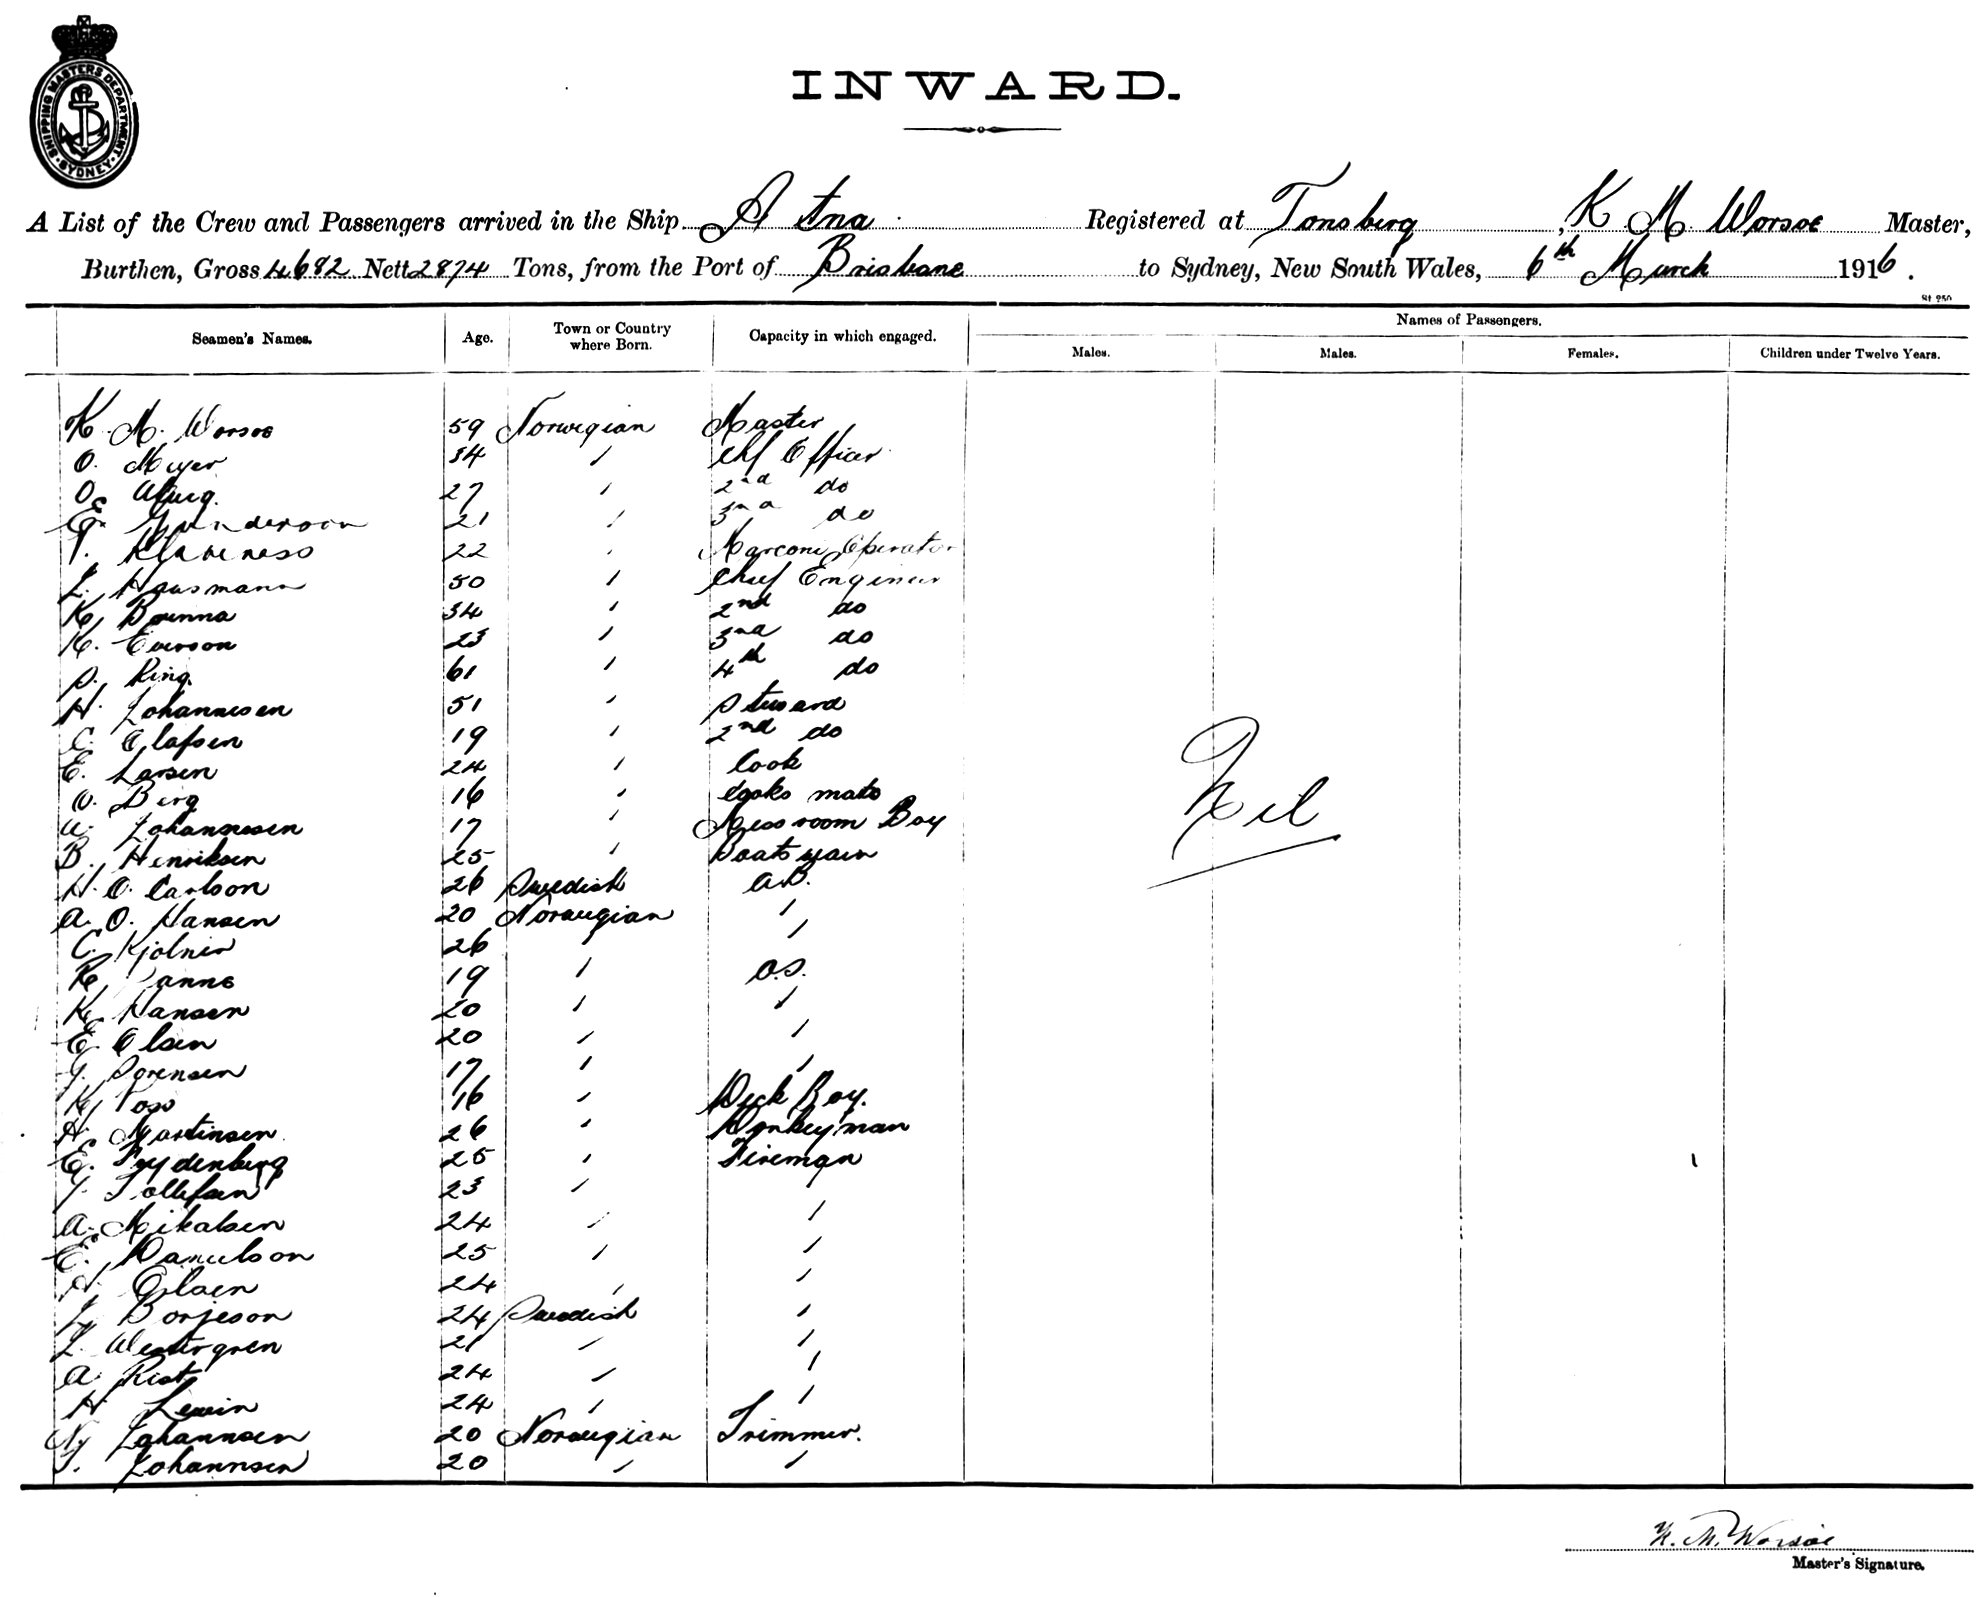 SHIPPING MASTERS DEPARTMENT SYDNEY
INWARD.
A List of the Crew and Passengers arrived in the Ship Atna Registered at Tonsberg, K M Worsoe Master,
Burthen, Gross 4682 Nett 2874 Tons, from the Port of Brisbane to Sydney, New South Wales, 6th March 1916.
Seamen's Names. Age. Town or Country where Born. Capacity in which engaged. Names of Passengers.
Males. Males. Females. Children under Twelve Years.
K. M. Worsoe 59 Norwegian Master
O. Meyer 34 " Chf Officer
O. 27 " 2nd do
E. Gunderson 21 " 3rd do
Klaveness 22 " Marconi Operator
L. Hausmann 50 " Chief Engineer
K. Brenna 34 " 2nd do
K. Everson 23 " 3rd do
S. Ring 61 " 4th do
H. Johannesen 51 " Steward
C. Olafsen 19 " 2nd do
E. Larsen 24 " Cook
O. Berg 16 " Cooks mate
Johannesen 17 " Mess room Boy
B. Henriksen 25 " Boatswain
H. O. Carlson 26 Swedish A.B.
A. O. Hansen 20 Norwegian "
C. Kjolner 26 " "
19 " O.S.
K. Hansen 20 " "
E. Olsen 20 " "
G. Sorensen 17 " "
K. Foss 16 " Deck Boy.
H. Martinsen 26 " Donkeyman
E. Frydenberg 25 " Fireman
Tollefsen 23 " "
A. Mikalsen 24 " "
E. Danielson 25 " "
H. Olsen 24 " "
Borjeson 24 Swedish "
J. Westergren 21 " "
A. Rist 24 " "
H Lewin 24 " "
Johannsen 20 Norwegian Trimmer.
Johannsen 20 " "
Nil
K. M. Worsoe
Master's Signature.